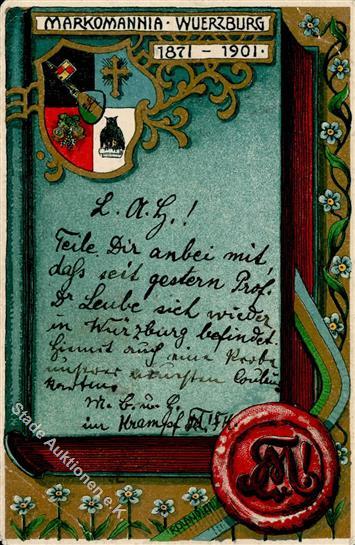 MARKOMANNIA · WUERZBURG
1871 - 1901 ·
L. A. H.!
Teile Dir anbei mit,
daß seit gestern Prof.
Dr Leube sich wieder
in Würzburg befindet.
Hiermit auch eine Probe
unserer
M. B. u. G.
im
Stade Auktionen e.K.